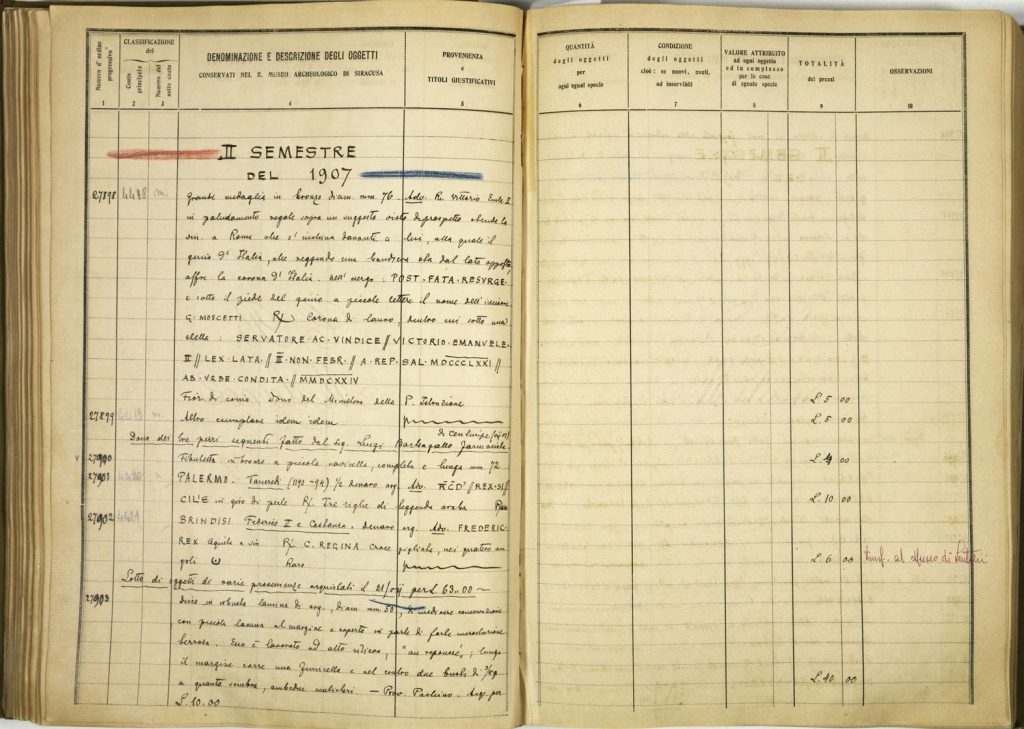 Numero d'ordine progressivo
CLASSIFICAZIONE
del
Conto principale
Numero del sotto conto
DENOMINAZIONE E DESCRIZIONE DEGLI OGGETTI
CONSERVATI NEL R. MUSEO ARCHEOLOGICO DI SIRACUSA
PROVENIENZA
e
TITOLI GIUSTIFICATIVI
QUANTITÀ
degli oggetti
per
ogni egual specie
CONDIZIONE
degli oggetti
cioè: se nuovi, usati,
od inservibili
VALORE ATTRIBUITO
ad ogni oggetto
ed in complesso
per le cose
di eguale specie
TOTALITÀ
dei prezzi
OSSERVAZIONI
1 2 3 4 5 6 7 8 9 10
II SEMESTRE
DEL 1907
27898 4418 m. Grande medaglia in bronzo diam. mm. 76 - Adv. Re Vittorio Emle II
in paludamento regale sopra un suggesto visto di prospetto stende la
m. a Roma che s'inclina davanti a lui, alla quale il
genio d'Italia, che reggendo una bandiera sta dal lato opposto,
offre la corona d'Italia. Nell'esergo: POST·FATA·RESVRGE·
e sotto il piede del genio a piccole lettere il nome dell'incisore
G. MOSCETTI R/ Corona di lauro, dentro cui sotto una
stella: SERVATORE·AC·VINDICE // VICTORIO·EMANVELE·
II // LEX·LATA· // II·NON·FEBR· // A·REP·SAL·MDCCCLXXI //
AB·VRBE·CONDITA· // MMDCXXIV
Fior di conio. Dono del Ministero della P. Istruzione L. 5 00
27899 4419 m. Altro esemplare idem idem L. 5 00
di Centuripe
Dono dei tre pezzi seguenti fatto dal sig. Luigi Barbagallo farmacista
27900 Fibuletta in bronzo a piccola navicella, completa e lunga mm. 72 L. 4 00
27901 PALERMO. Tancredi (1190-94) ½ denaro arg. Adv. REX·SI
CILIE in giro di perle R/ Tre righe di leggenda araba Raro L. 10 00
27902 4421 BRINDISI Federico II e Costanza. denaro arg. Adv. FREDERIC·
REX aquila a sin. R/ C. REGINA Croce gigliata, nei quattro an
goli Raro L. 6 00 trasf. al Museo di
Lotto di oggetti di varie provenienze acquistati per L. 63.00
27903 disco in robusta lamina di arg., diam. mm. 50, di mediocre conservazione
con piccola lacuna al margine e coperto in parte di forte incrostazione
terrosa. Esso è lavorato ad alto rilievo, "au repoussé"; lungo
il margine corre una funicella e nel centro due busti di
a quanto sembra, ambedue muliebri. - Prov. Pachino. Acq. per L. 40 00
L. 10.00